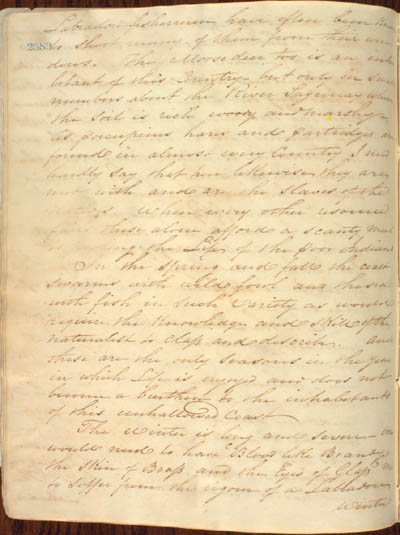 Labrador fishermen have often been known
2582
to shoot many of them from their win
dows. The Moose deer too is an inha
bitant of this Country but only in small
numbers about the River Saguenay where
the soil is rich woody and marshy
As porcupines hares and partridges are
found in almost every Country I need
hardly say that here likewise they are
met with and are the slaves of the
When every other resource
fails these alone afford a scanty meal
the Life of the poor Indian
In the Spring and fall the coast
swarms with wild fowl and the sea
with fish in such Variety as would
require the Knowledge and Skill of the
naturalist to class and describe. And
these are the only seasons in the year
in which Life is enjoyed and does not
become a burthen to the inhabitants
of this unhallowed Coast
The Winter is long and severe one
would need to have Blood like Brandy
the Skin of Brass and the Eyes of Glass not
to suffer from the rigour of a Labrador
Winter